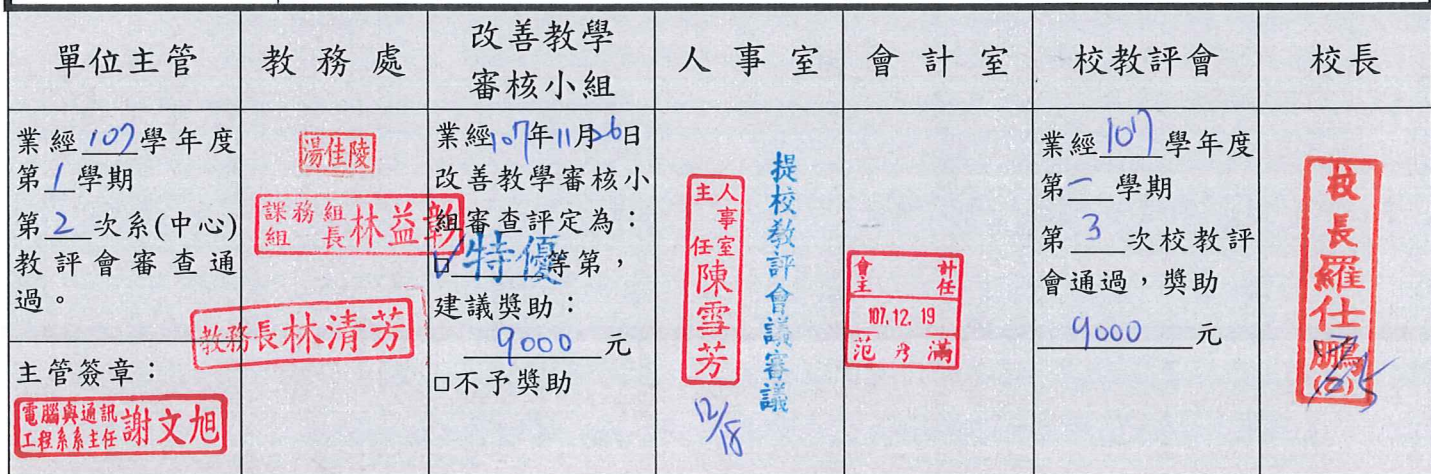 單位主管
教務處
改善教學
審核小組
人事室
會計室
校教評會
校長
業經107學年度
第1學期
第2次系(中心)
教評會審查通
過。
主管簽章：
電腦與通訊
工程系系主任
謝文旭
湯佳陵
課務組
組長
林益彰
教務長林清芳
業經107年11月26日
改善教學審核小
組審查評定為：
□特優等第，
建議獎助：
9000元
□不予獎助
人事室
主任
陳雪芳
提校教評會議審議
12/18
會計
主任
107.12.19
范
滿
業經107學年度
第一學期
第3次校教評
會通過，獎助
9000元
校長羅仕鵬
(2)